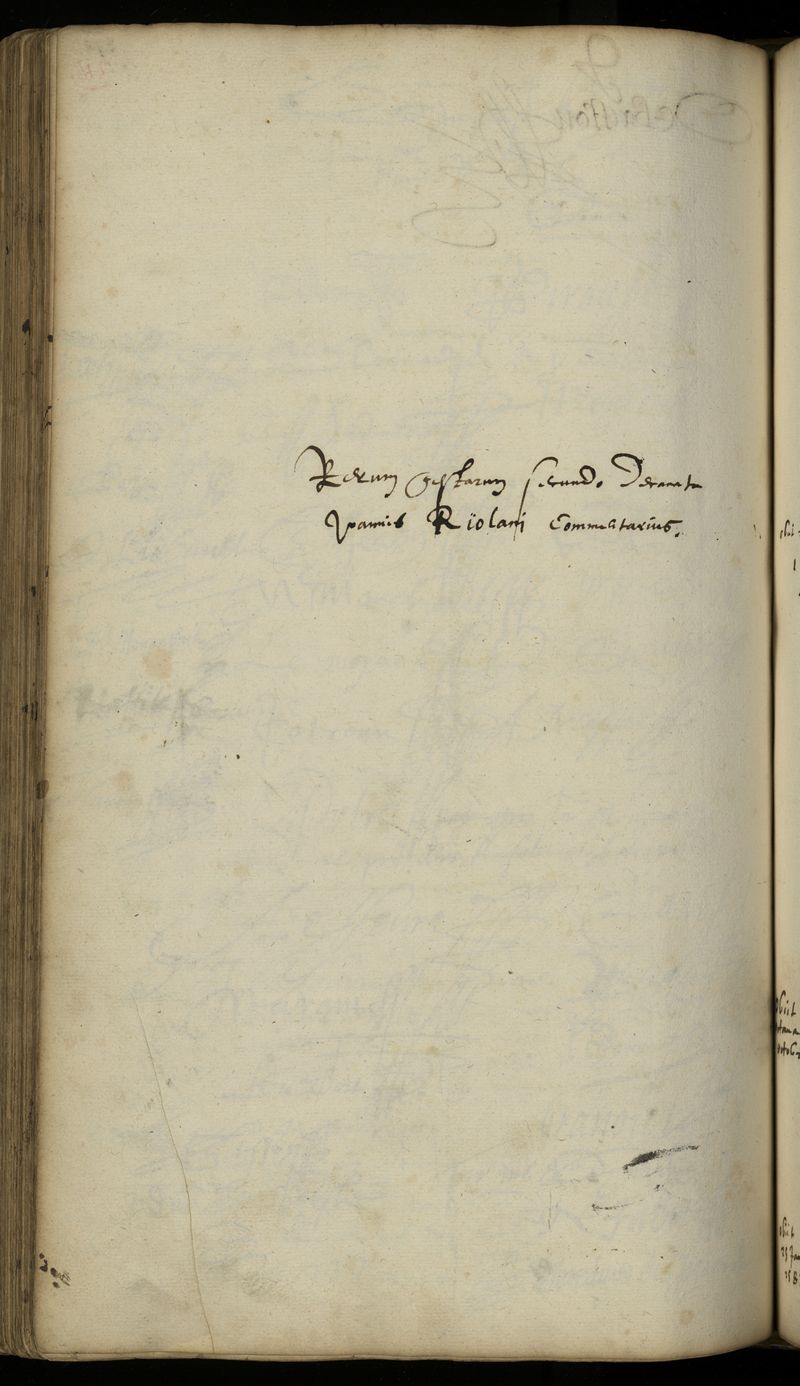 Rerum gestarum secundo Decanatu
Joannis Riolani Commentarius.